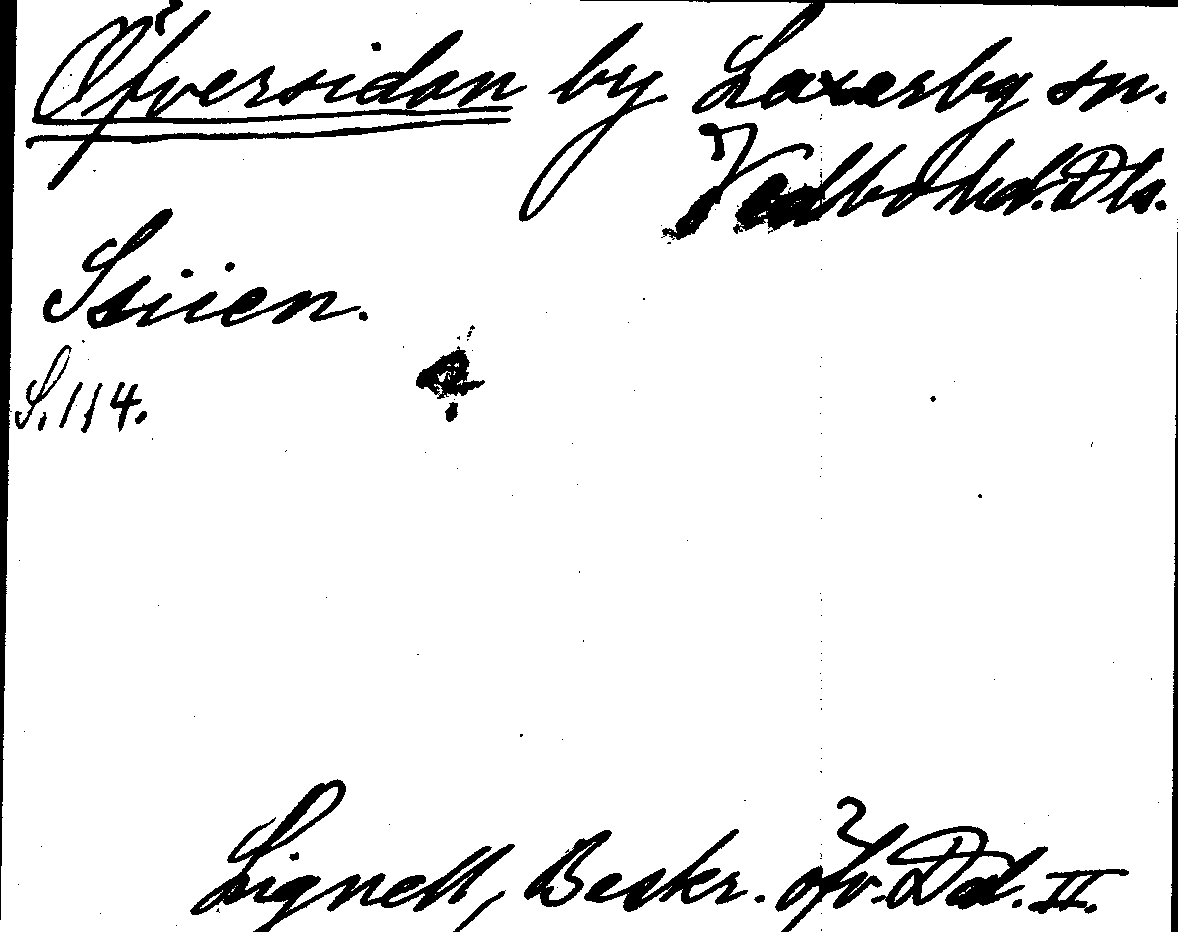 Öfversidan by Laxarby sn.
Vedbo hd. Dls.
S. 114.
Lignell, Beskr. öfv. Dal. II.